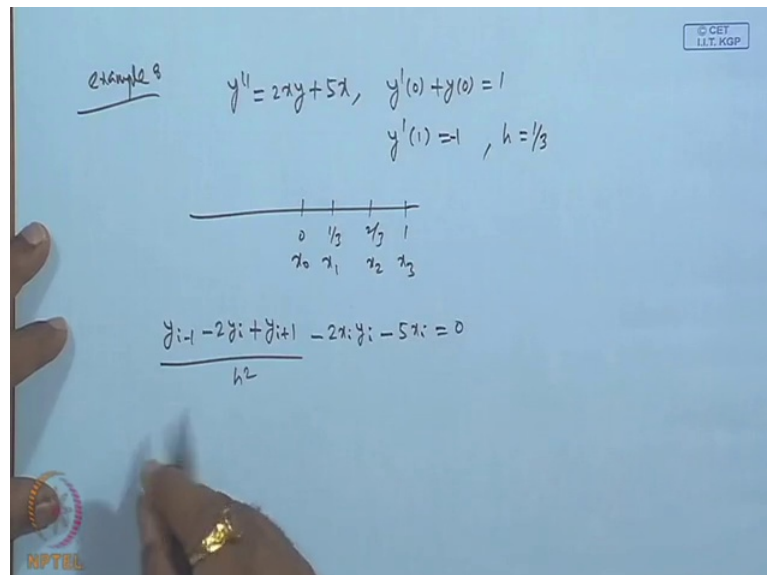 © CET
I.I.T. KGP
example :
y'' = 2xy + 5x, y'(0) + y(0) = 1
y'(1) = -1 , h = 1/3
0 1/3 2/3 1
x₀ x₁ x₂ x₃
yᵢ₋₁ - 2yᵢ + yᵢ₊₁ - 2xᵢyᵢ - 5xᵢ = 0
h²
NPTEL